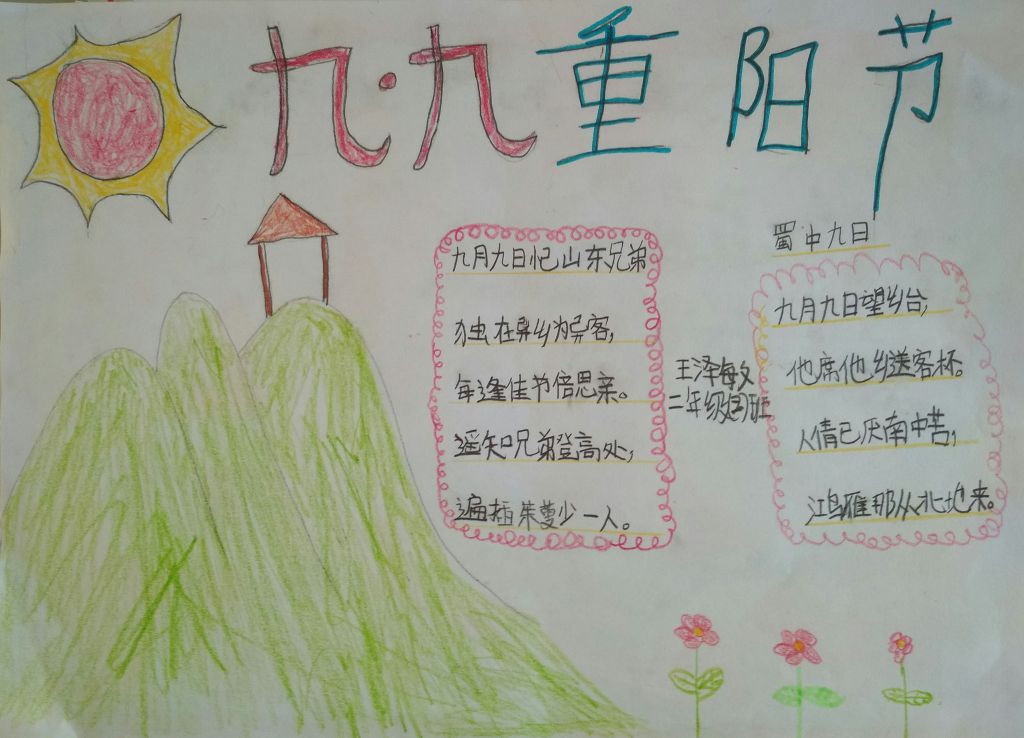 九·九重阳节
九月九日忆山东兄弟
独在异乡为异客，
每逢佳节倍思亲。
遥知兄弟登高处，
遍插茱萸少一人。
王泽梅文
二年级四班
蜀中九日
九月九日望乡台，
他席他乡送客杯。
人情已厌南中苦，
鸿雁那从北地来。